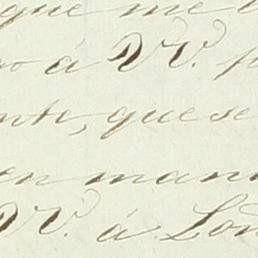 que me
á VV.
nte, que se
en man
VV. á Lon